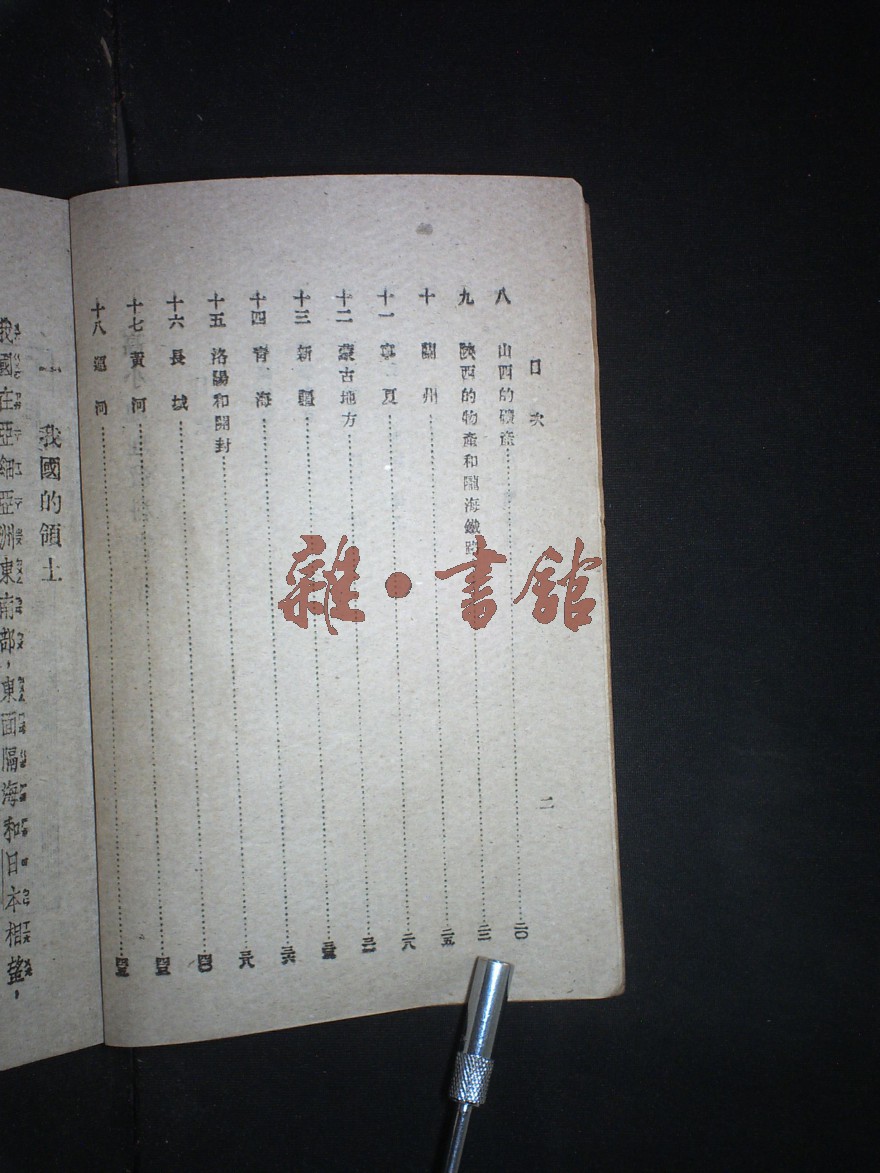 目次
二
八 山西的礦產 二〇
九 陝西的物產和隴海鐵路 二二
十 蘭州 二五
十一 寧夏 二八
十二 蒙古地方
十三 新疆
十四 青海 三六
十五 洛陽和開封 三八
十六 長城 四〇
十七 黃河
十八 運河
一 我國的領土
我國在亞細亞洲東南部,東面隔海和日本相望,
雜・書館